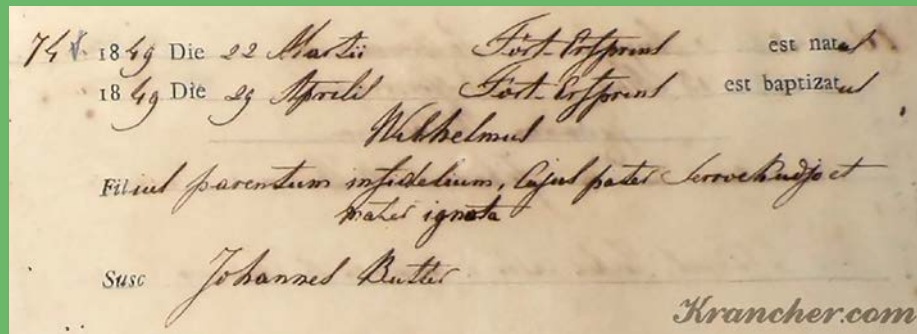 74 1849 Die 22 Martii Fort-Erfprins est natus
1849 Die 29 Aprilis Fort-Erfprins est baptizatus
Wilhelmus
Filius parentum infidelium, cujus pater Serroekudjo et
mater ignota
Susc Johannes Butter
Krancher.com